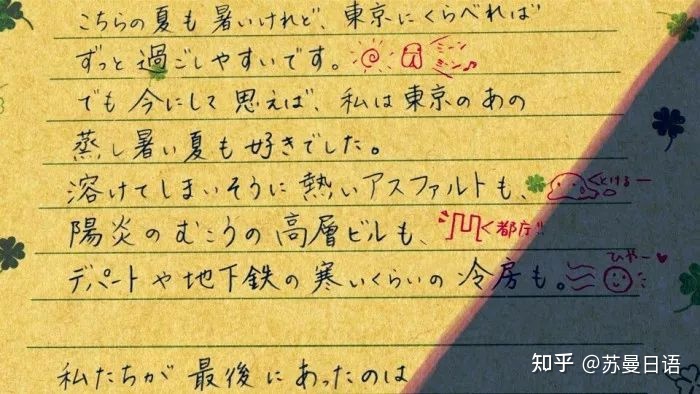 こちらの夏も暑いけれど、東京にくらべれば
ずっと過ごしやすいです。
ミーン
ミン♪
でも今にして思えば、私は東京のあの
蒸し暑い夏も好きでした。
溶けてしまいそうに熱いアスファルトも、
とけるー
陽炎のむこうの高層ビルも、
都庁!!
デパートや地下鉄の寒いくらいの冷房も。
ひやー♥
私たちが最後にあったのは
知乎 @苏曼日语